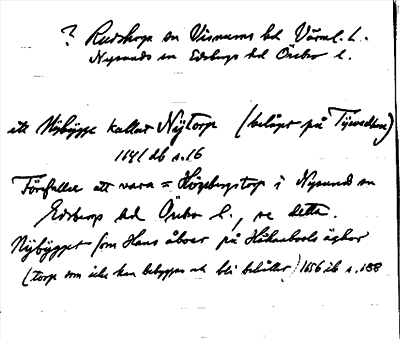 ? Rudskoga sn Visnums hd Värml. l.
Nysunds sn Edsbergs hd Örebro l.
ett Nybygge kallat Nytorp (beläget på Tyveden)
1641 db s. 16
Förefaller att vara = Högbergstorp i Nysunds sn
Edsbergs hd Örebro l., se detta.
Nybygget som Hans åboer på Håkanbools ägher
(torp som icke kan bebyggas och bli behållet) 1656 ib s. 188